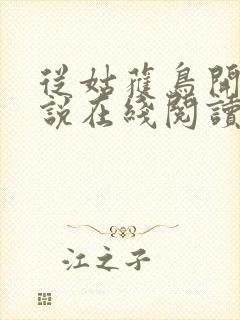 從姑獲鳥開
說在綫閱讀
江之子